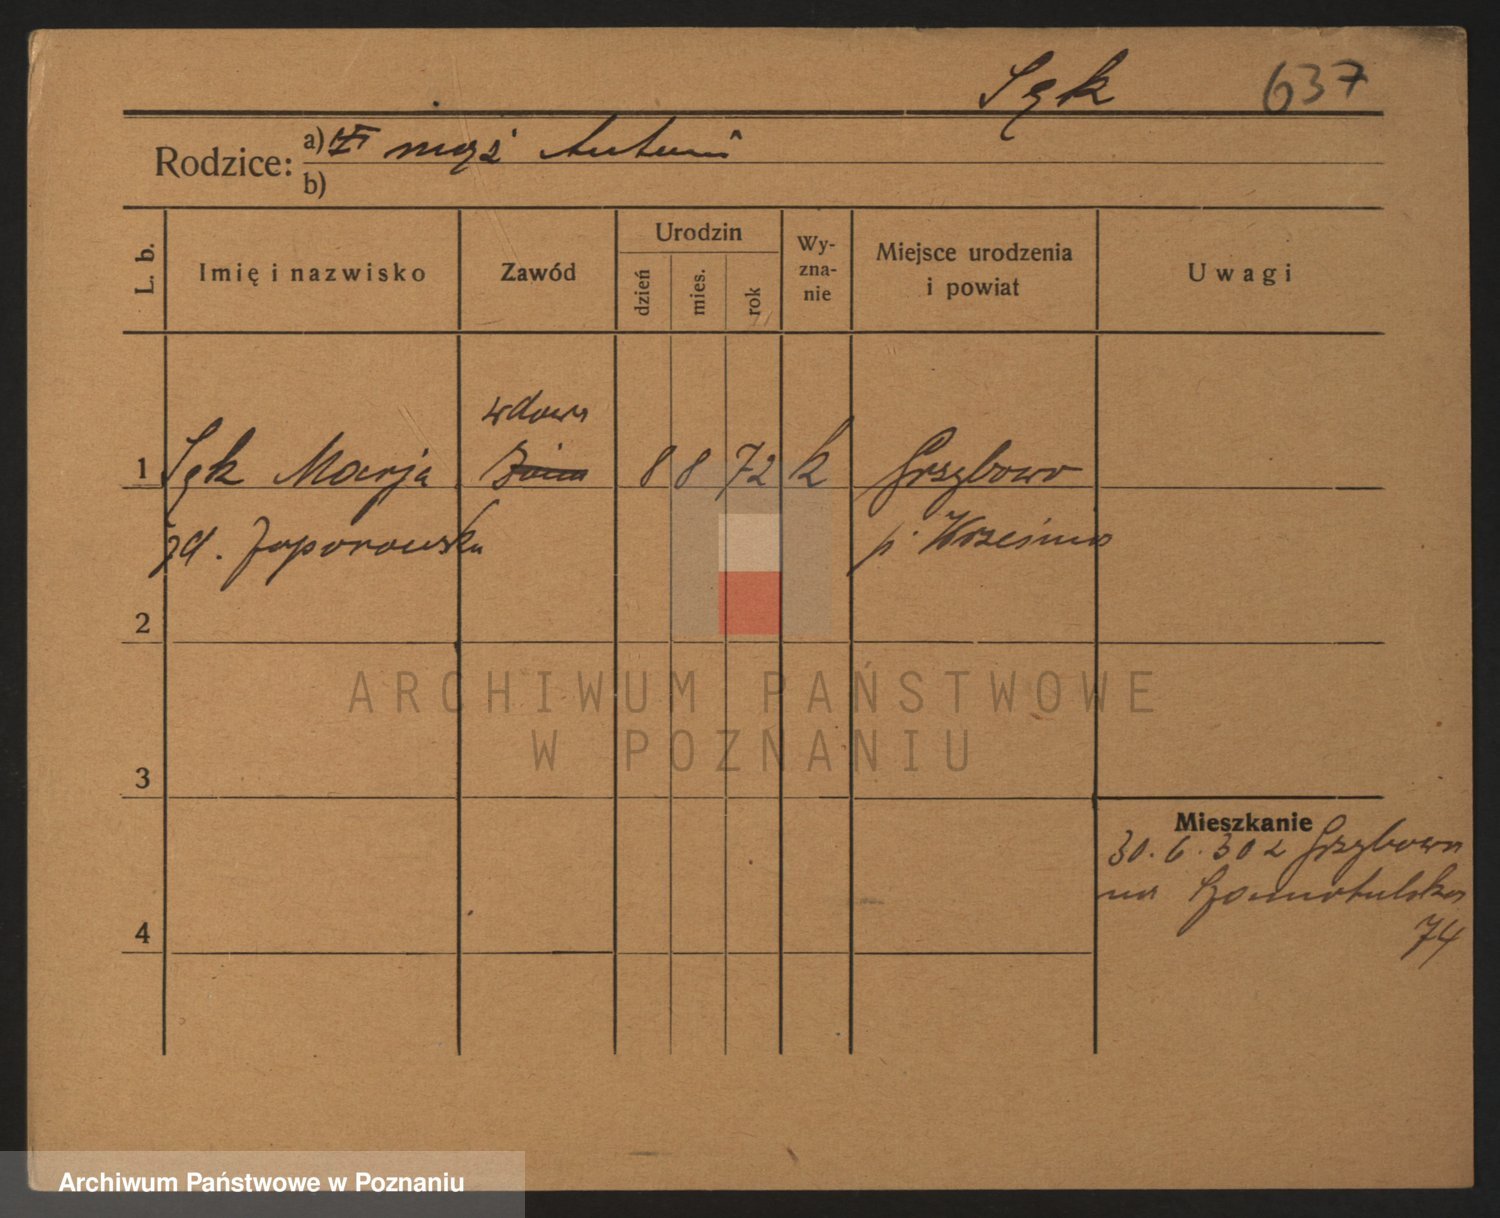 Sęk 637
Rodzice: a) mąż Antoni
b)
L. b. Imię i nazwisko Zawód Urodzin dzień mies. rok Wy-zna-nie Miejsce urodzenia i powiat Uwagi
wdowa
1 Sęk Marja 8 8 72 k Grzybowo
zd. Zaporowska p. Września
2
ARCHIWUM PAŃSTWOWE
W POZNANIU
3
Mieszkanie
30.6.30 z Grzybowa
na Szamotulska
4 74
Archiwum Państwowe w Poznaniu